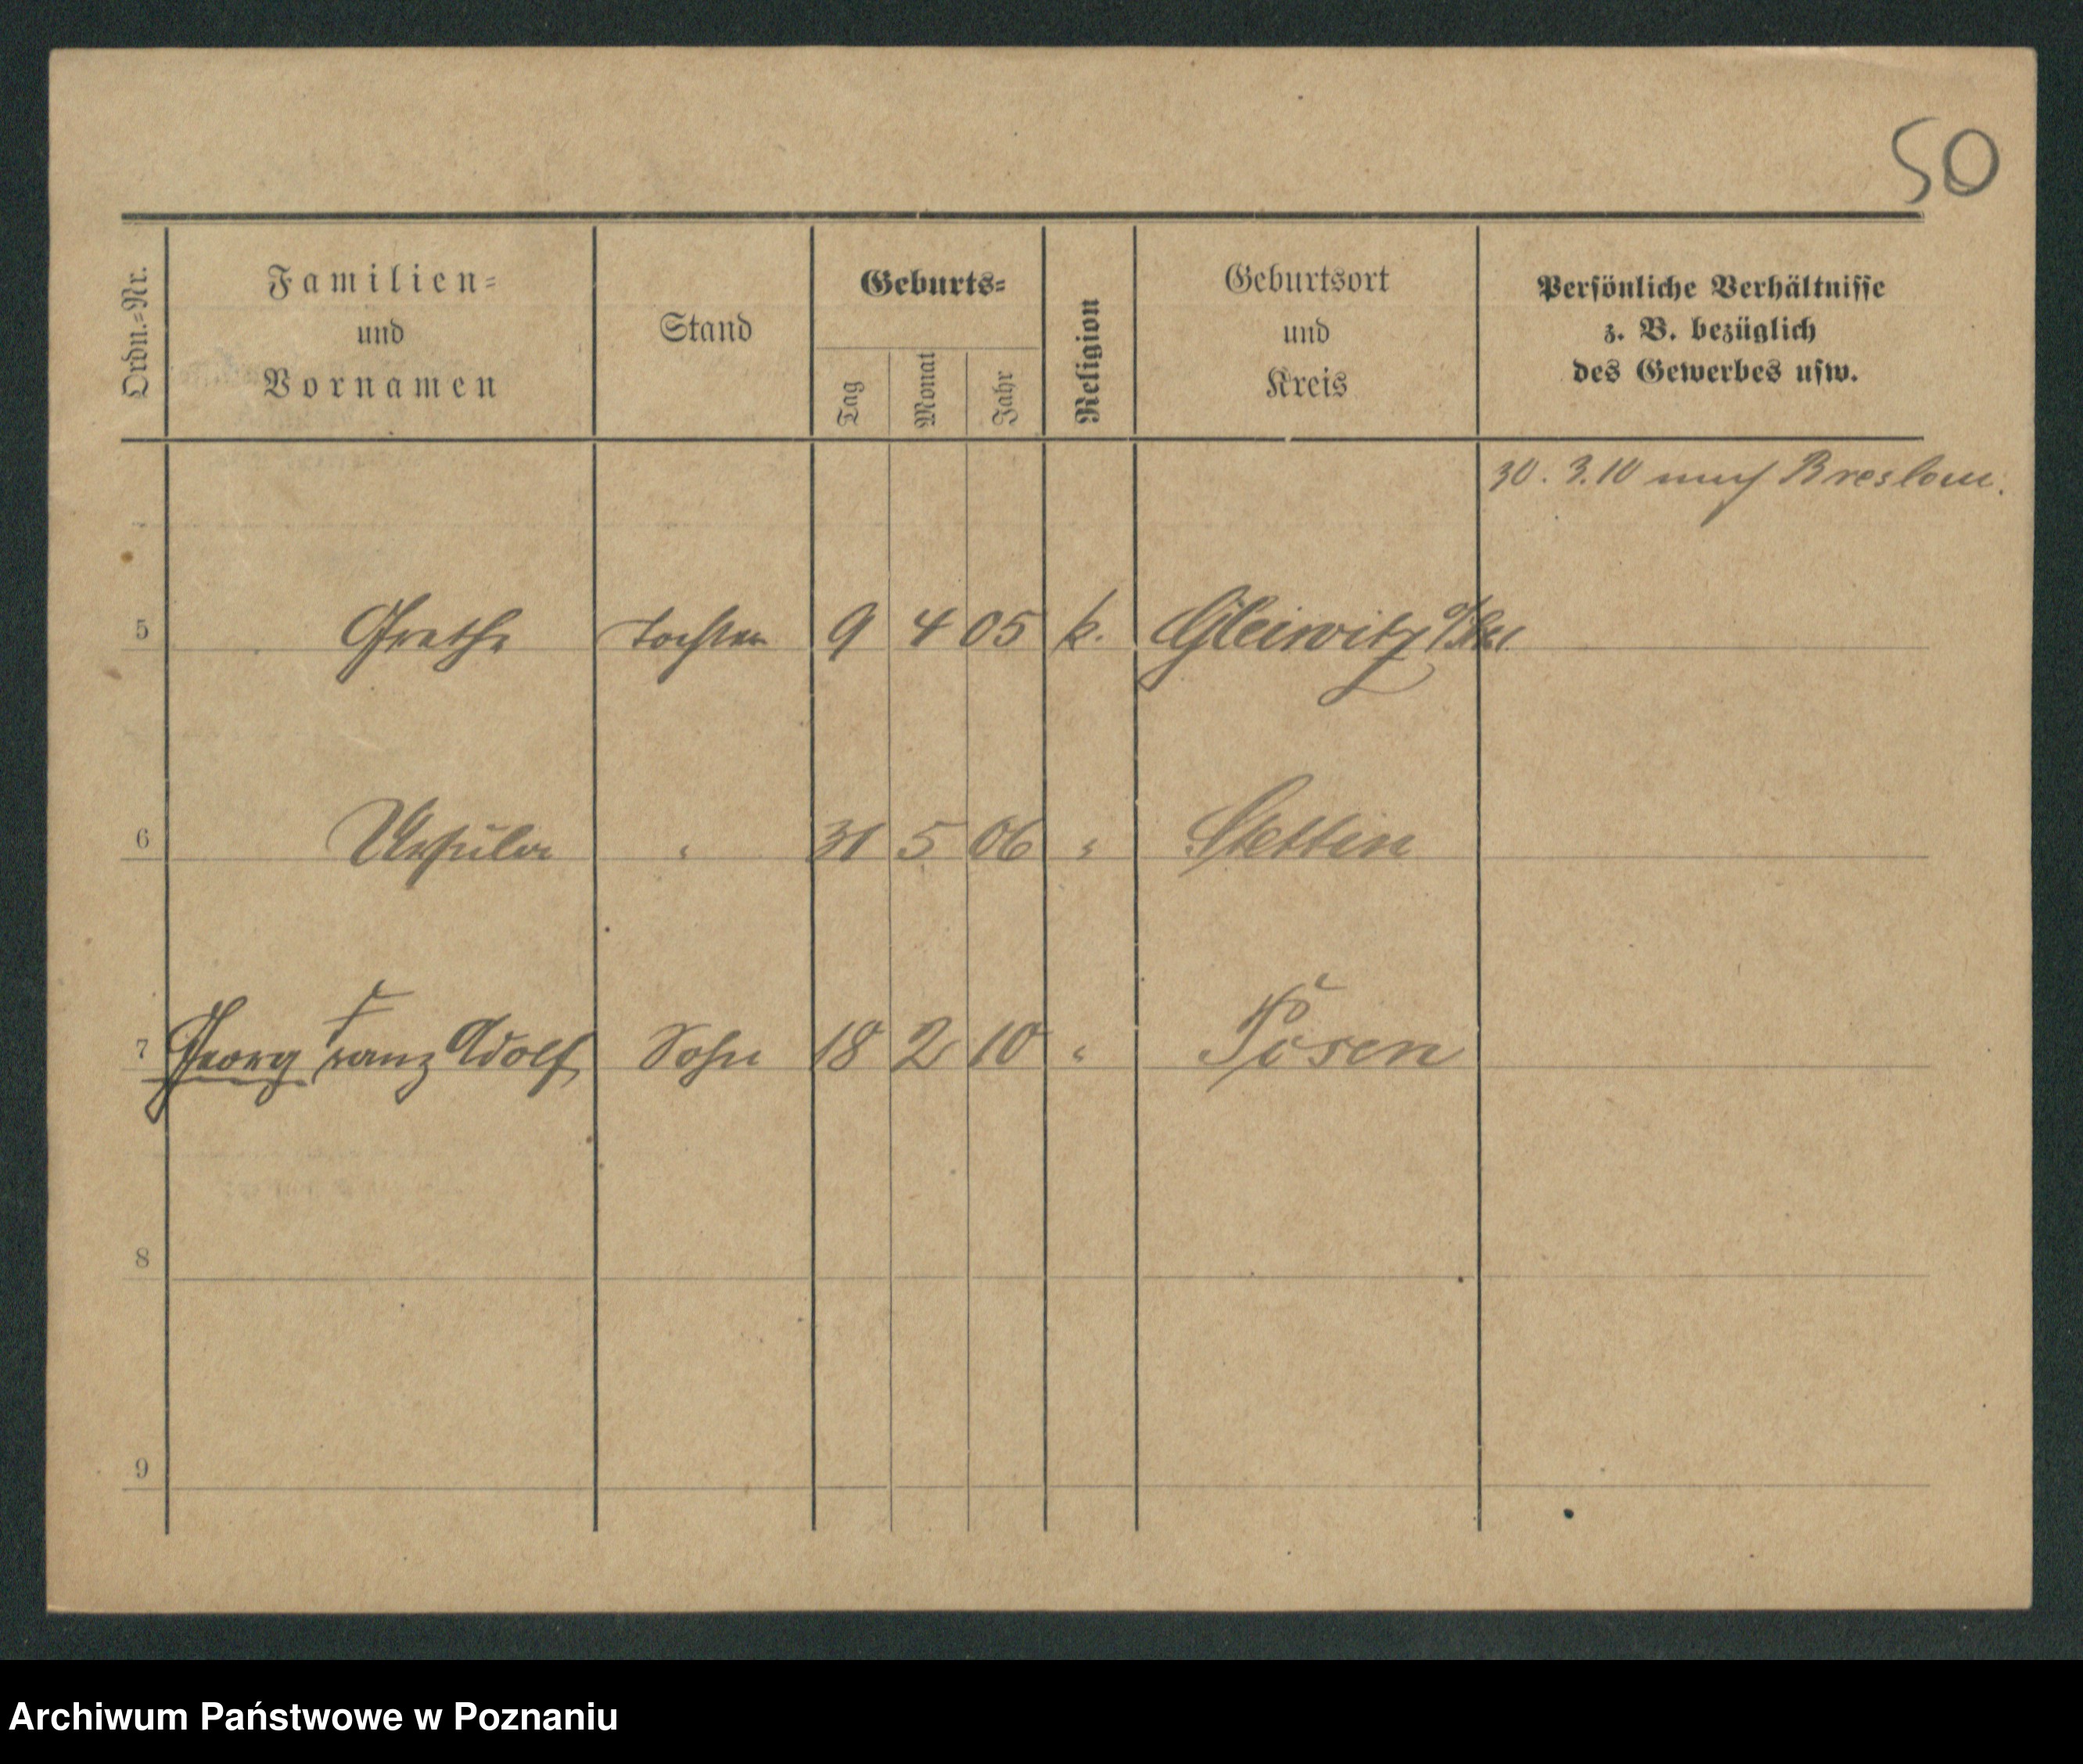 50
Ordn.-Nr.
Familien-
und
Vornamen
Stand
Geburts-
Tag
Monat
Jahr
Religion
Geburtsort
und
Kreis
Persönliche Verhältnisse
z. B. bezüglich
des Gewerbes usw.
30. 3. 10 nach Breslau.
5 Grethe Tochter 9 4 05 k. Gleiwitz
6 Ursula " 31 5 06 " Stettin
7 Georg Franz Adolf Sohn 18 2 10 " Posen
8
9
Archiwum Państwowe w Poznaniu